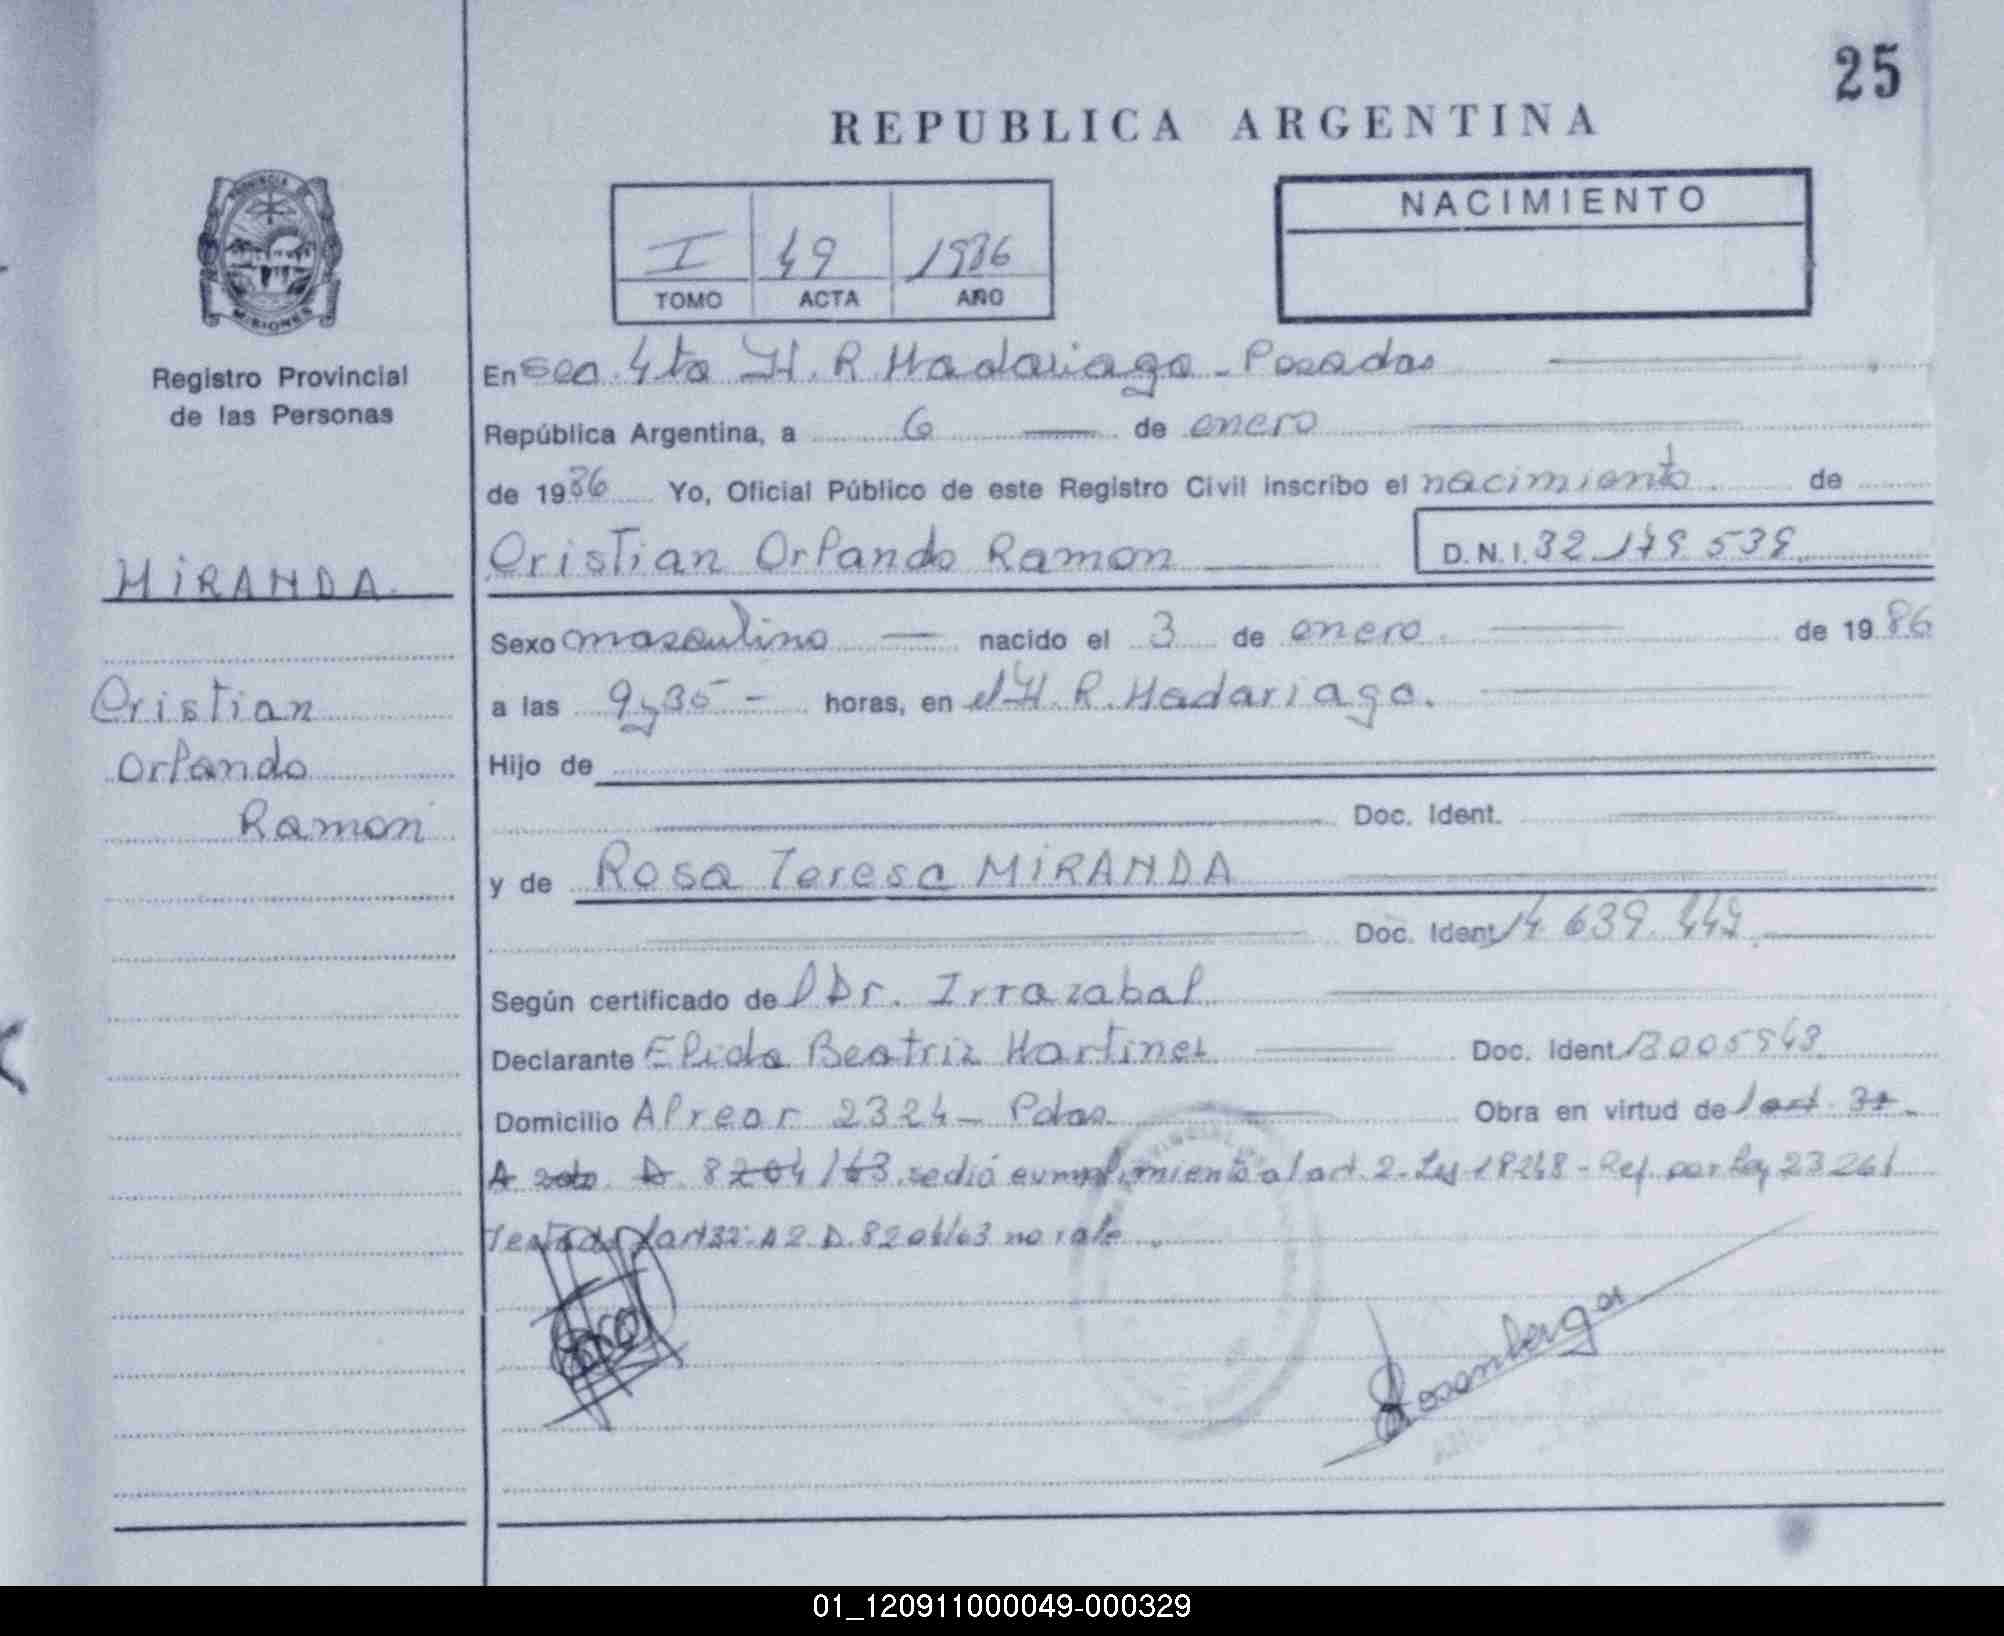 25
REPUBLICA ARGENTINA
NACIMIENTO
I 49 1986
TOMO ACTA AÑO
PROVINCIA DE
MISIONES
Registro Provincial
de las Personas
En sec. 4ta H. R. Madariaga - Posadas
República Argentina, a 6 de enero
de 1986 Yo, Oficial Público de este Registro Civil inscribo el nacimiento de
Cristian Orlando Ramon D.N.I. 32.179.539
MIRANDA.
Sexo masculino nacido el 3 de enero. de 1986
a las 9 y 35 - horas, en el H. R. Madariaga.
Cristian
Orlando
Ramon
Hijo de
Doc. Ident.
y de Rosa Teresa MIRANDA
Doc. Ident. 14.639.447
Según certificado de l Dr. Irrazabal
Declarante Elida Beatriz Martinez Doc. Ident.
Domicilio Alvear 2324 - Pdas. Obra en virtud de l art. 32.
A 2do. D. 8204/63. se dió cumplimiento al art. 2 - Ley 18248 - Ref. por ley 23261
Testado: l art 32: A 2 D. 8204/63 no vale.
01_120911000049-000329